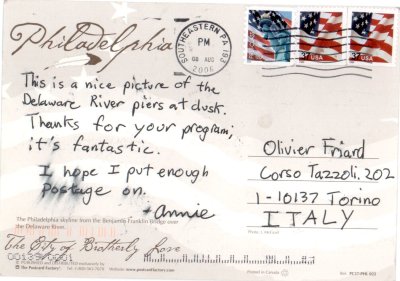 Philadelphia
SOUTHEASTERN PA 193
PM
08 AUG
2006
USA
USA
This is a nice picture of the
Delaware River piers at dusk.
Thanks for your program,
it's fantastic.
I hope I put enough
Postage on.
Annie
Olivier Friard
Corso Tazzoli, 202
I-10137 Torino
ITALY
The Philadelphia skyline from the Benjamin Franklin Bridge over
the Delaware River.
The City of Brotherly Love
The Postcard Factory
Website: www.postcardfactory.com
Printed in Canada